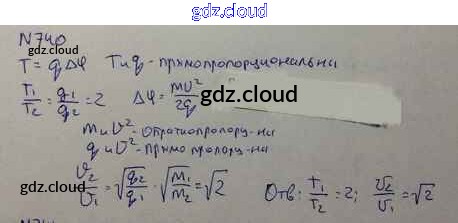 gdz.cloud
N740
gdz.cloud
T = qΔφ T и q - прямопропорциональны
T₁/T₂ = q₁/q₂ = 2 Δφ = mυ²/2q gdz.cloud
m и υ² - обратнопропорц-ны
q и υ² - прямо пропорц-ны
υ₂/υ₁ = √(q₂/q₁) · √(m₁/m₂) = √2 Отв: T₁/T₂ = 2; υ₂/υ₁ = √2